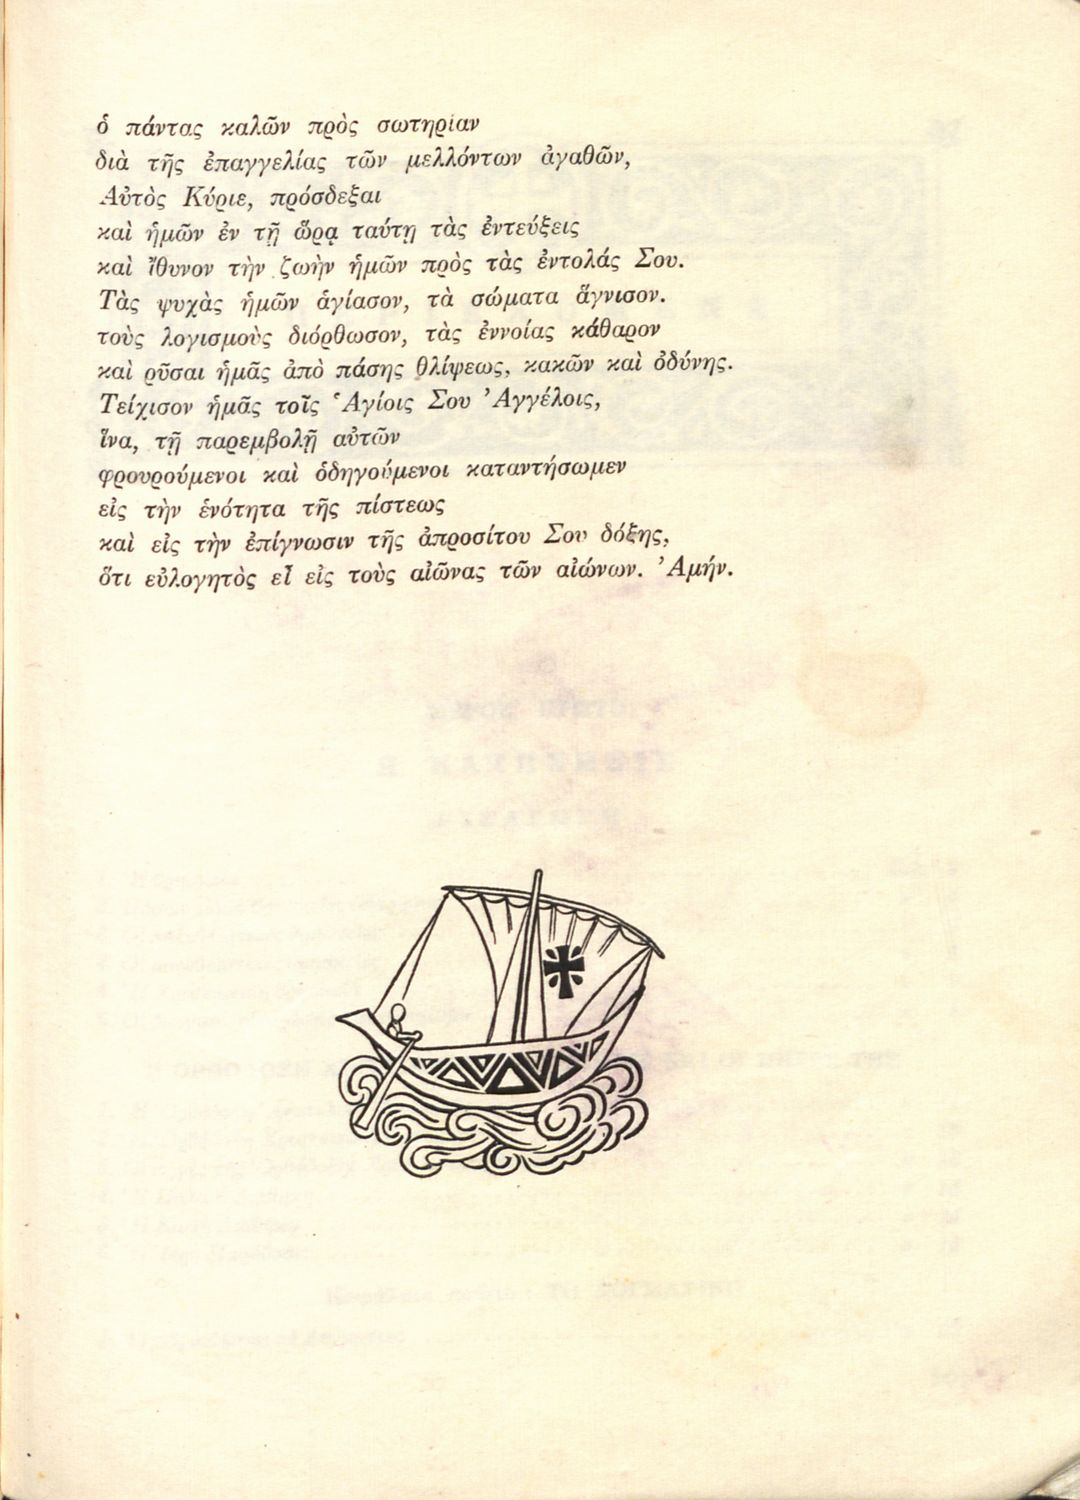 ὁ πάντας καλῶν πρὸς σωτηρίαν
διὰ τῆς ἐπαγγελίας τῶν μελλόντων ἀγαθῶν,
Αὐτὸς Κύριε, πρόσδεξαι
καὶ ἡμῶν ἐν τῇ ὥρᾳ ταύτῃ τὰς ἐντεύξεις
καὶ ἴθυνον τὴν ζωὴν ἡμῶν πρὸς τὰς ἐντολάς Σου.
Τὰς ψυχὰς ἡμῶν ἁγίασον, τὰ σώματα ἅγνισον.
τοὺς λογισμοὺς διόρθωσον, τὰς ἐννοίας κάθαρον
καὶ ρῦσαι ἡμᾶς ἀπὸ πάσης θλίψεως, κακῶν καὶ ὀδύνης.
Τείχισον ἡμᾶς τοῖς Ἁγίοις Σου Ἀγγέλοις,
ἵνα, τῇ παρεμβολῇ αὐτῶν
φρουρούμενοι καὶ ὁδηγούμενοι καταντήσωμεν
εἰς τὴν ἑνότητα τῆς πίστεως
καὶ εἰς τὴν ἐπίγνωσιν τῆς ἀπροσίτου Σου δόξης,
ὅτι εὐλογητὸς εἶ εἰς τοὺς αἰῶνας τῶν αἰώνων. Ἀμήν.